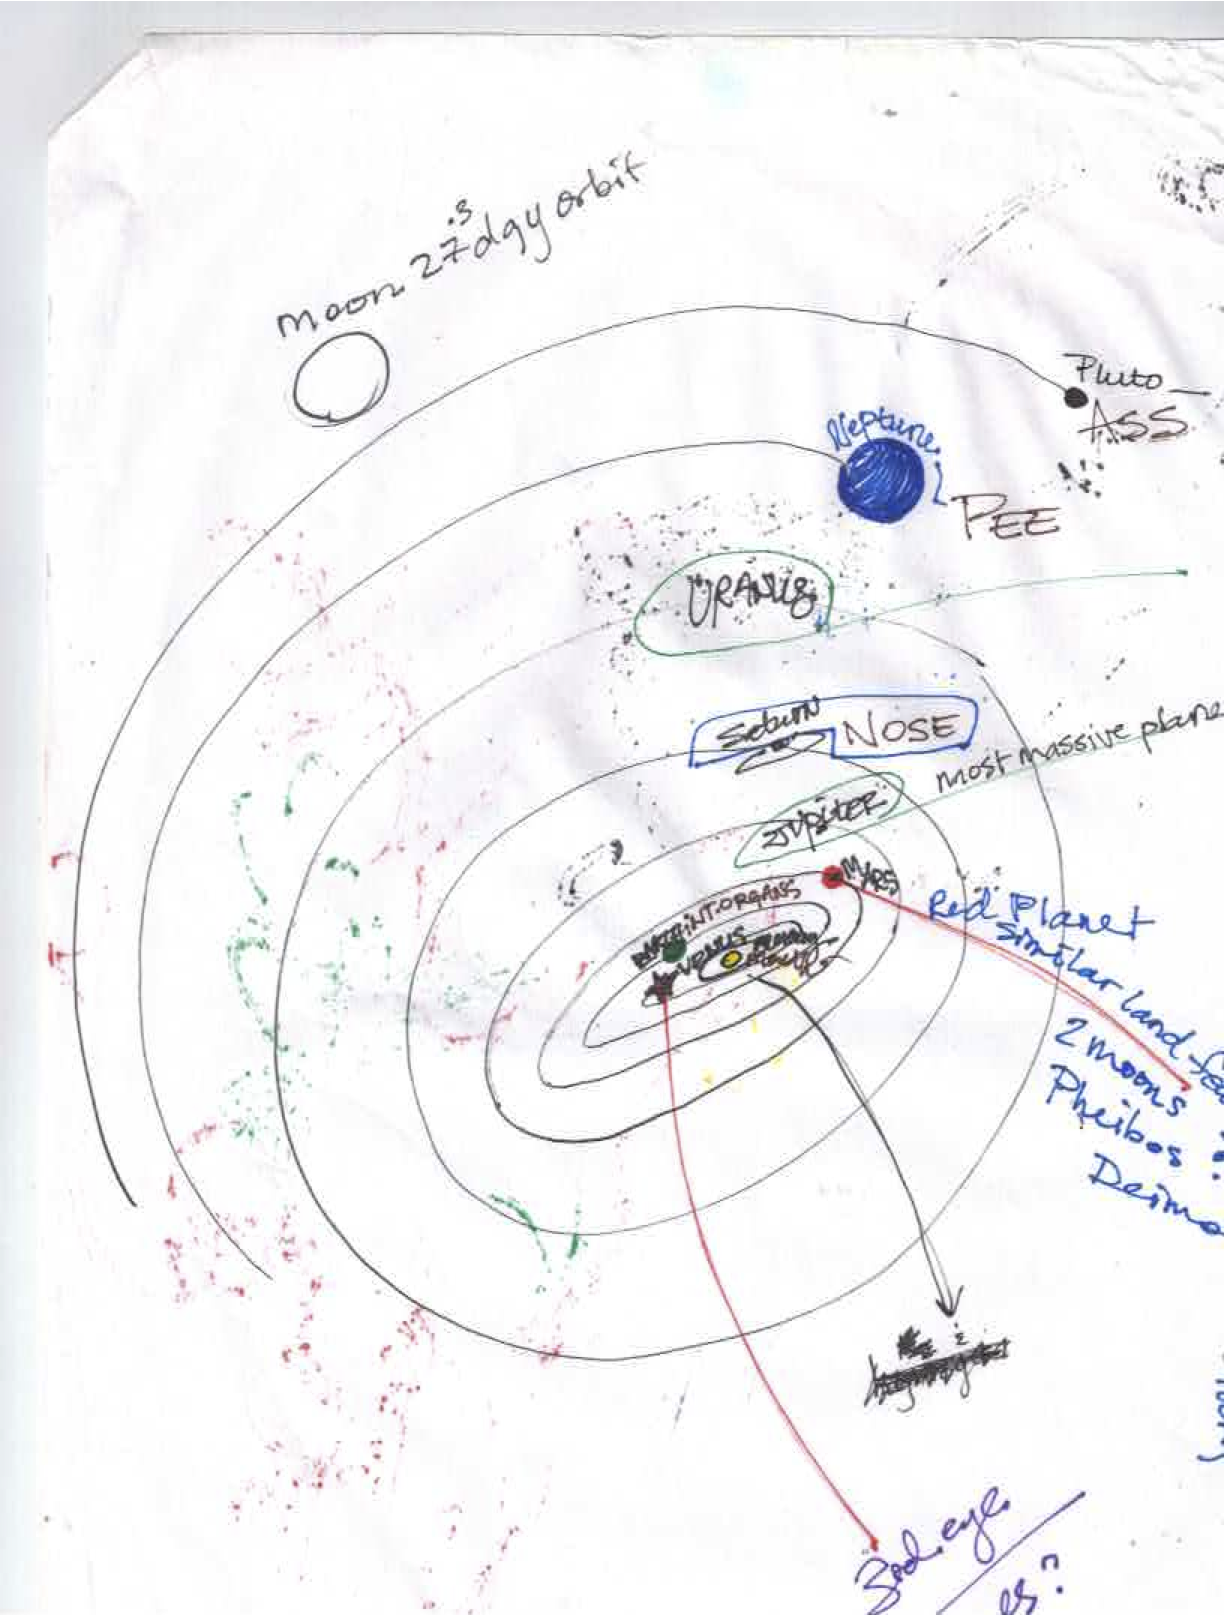 moon 27.3 day orbit
Pluto
ASS
Neptune
PEE
URANUS
Saturn
NOSE
most massive plane
Jupiter
MARS
INT. ORGANS
EARTH
VENUS
Red Planet
similar land-fea
2 moons
Pheibos
Deimo
3rd. eye.
es?